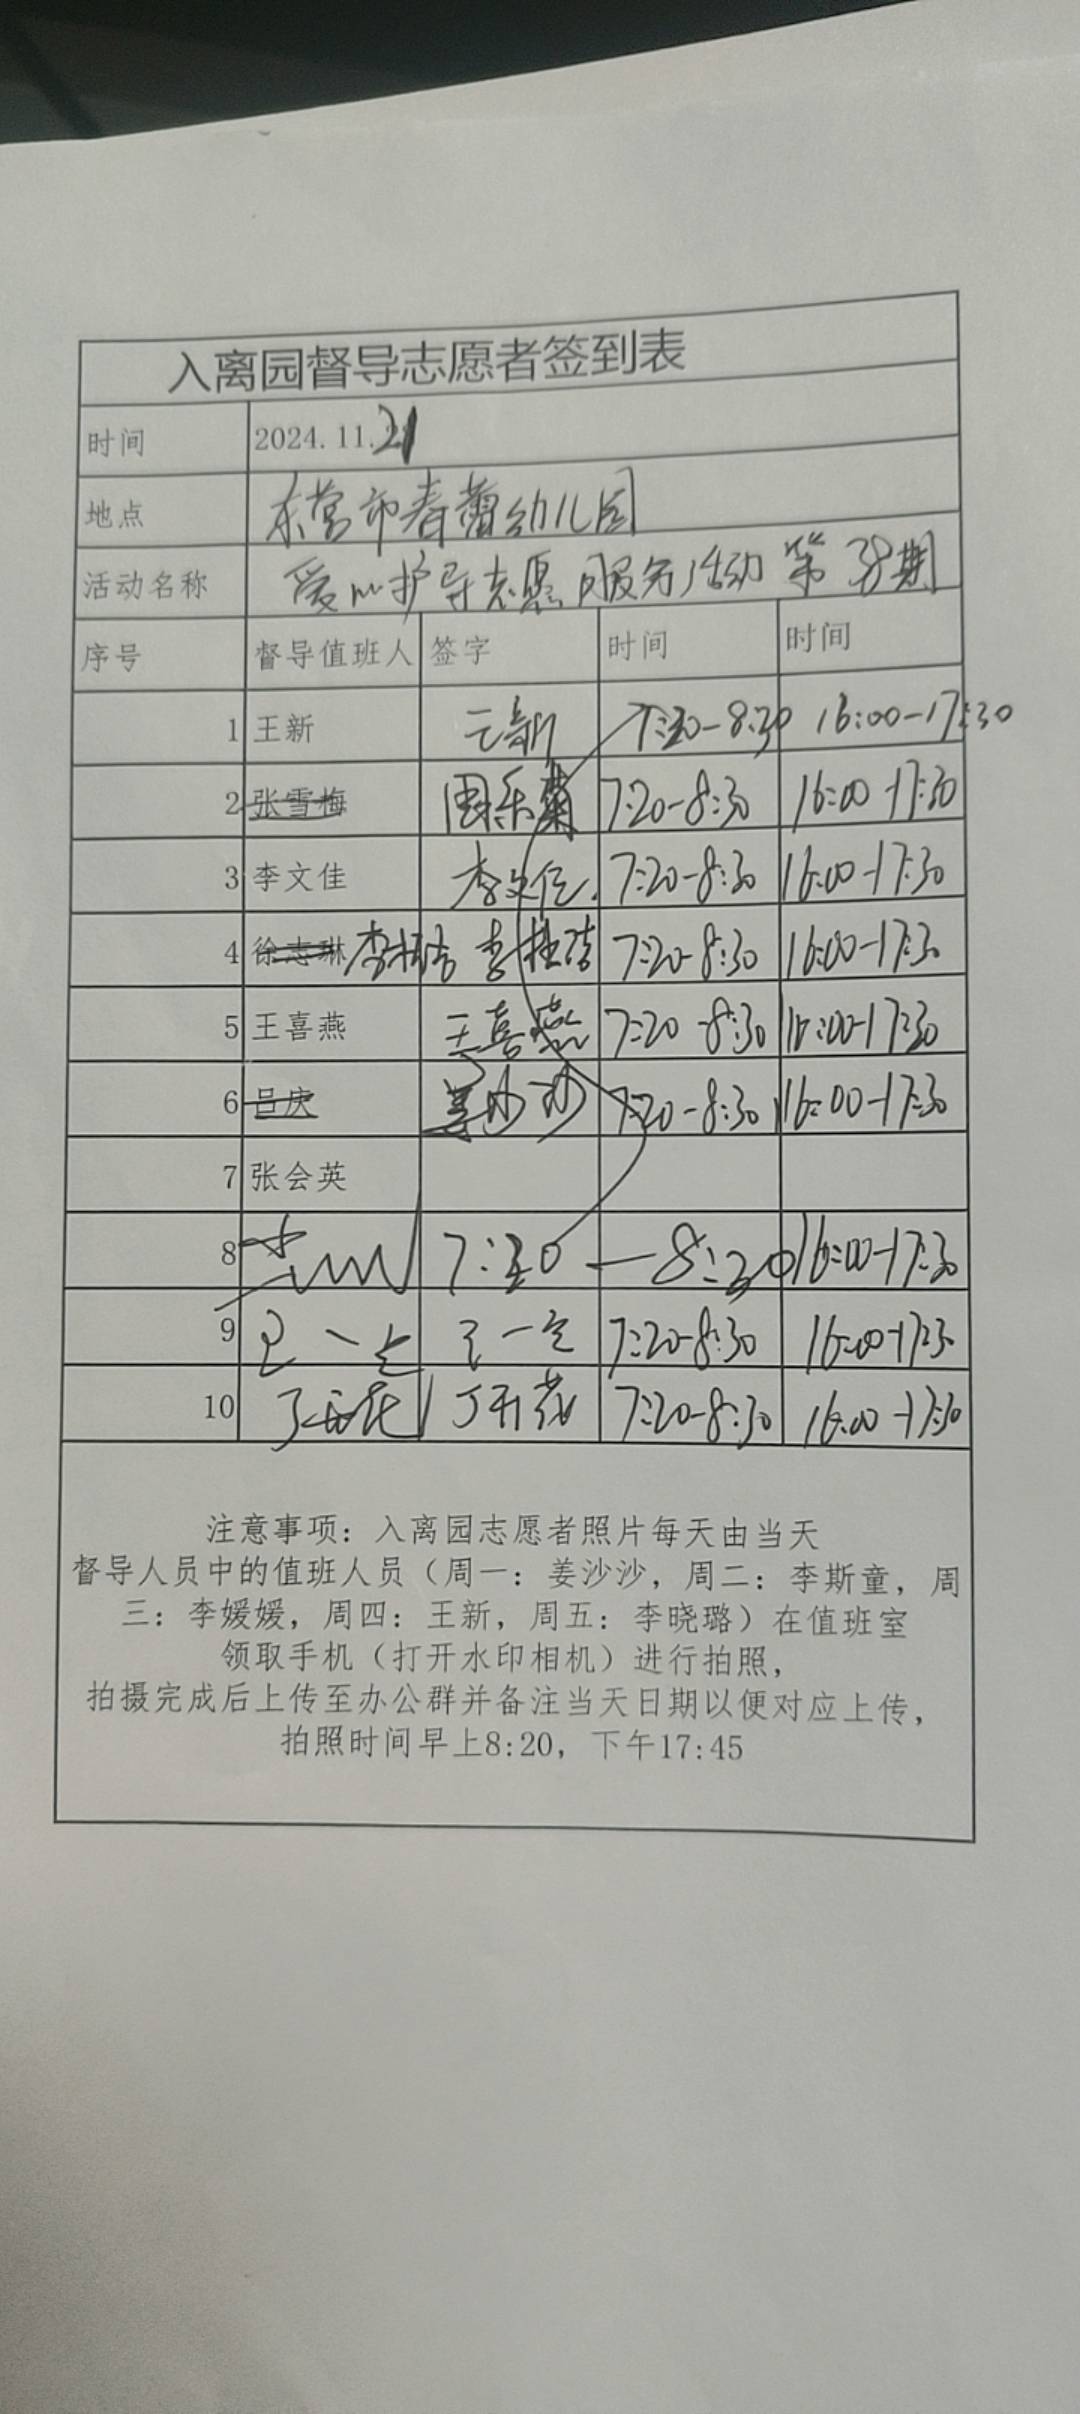 入离园督导志愿者签到表
时间 2024.11.21
地点 东营市春蕾幼儿园
活动名称 爱心护导志愿服务活动 第38期
序号 督导值班人 签字 时间 时间
1 王新 王新 7:20-8:30 16:00-17:30
2 张雪梅 周乐菊 7:20-8:30 16:00-17:30
3 李文佳 李文佳 7:20-8:30 16:00-17:30
4 徐志琳 李 李 7:20-8:30 16:00-17:30
5 王喜燕 王喜燕 7:20-8:30 16:00-17:30
6 吕庆 姜沙沙 7:20-8:30 16:00-17:30
7 张会英
8 7:20-8:30 16:00-17:30
9 7:20-8:30 16:00-17:30
10 7:20-8:30 16:00-17:30
注意事项：入离园志愿者照片每天由当天
督导人员中的值班人员（周一：姜沙沙，周二：李斯童，周
三：李媛媛，周四：王新，周五：李晓璐）在值班室
领取手机（打开水印相机）进行拍照，
拍摄完成后上传至办公群并备注当天日期以便对应上传，
拍照时间早上8:20，下午17:45